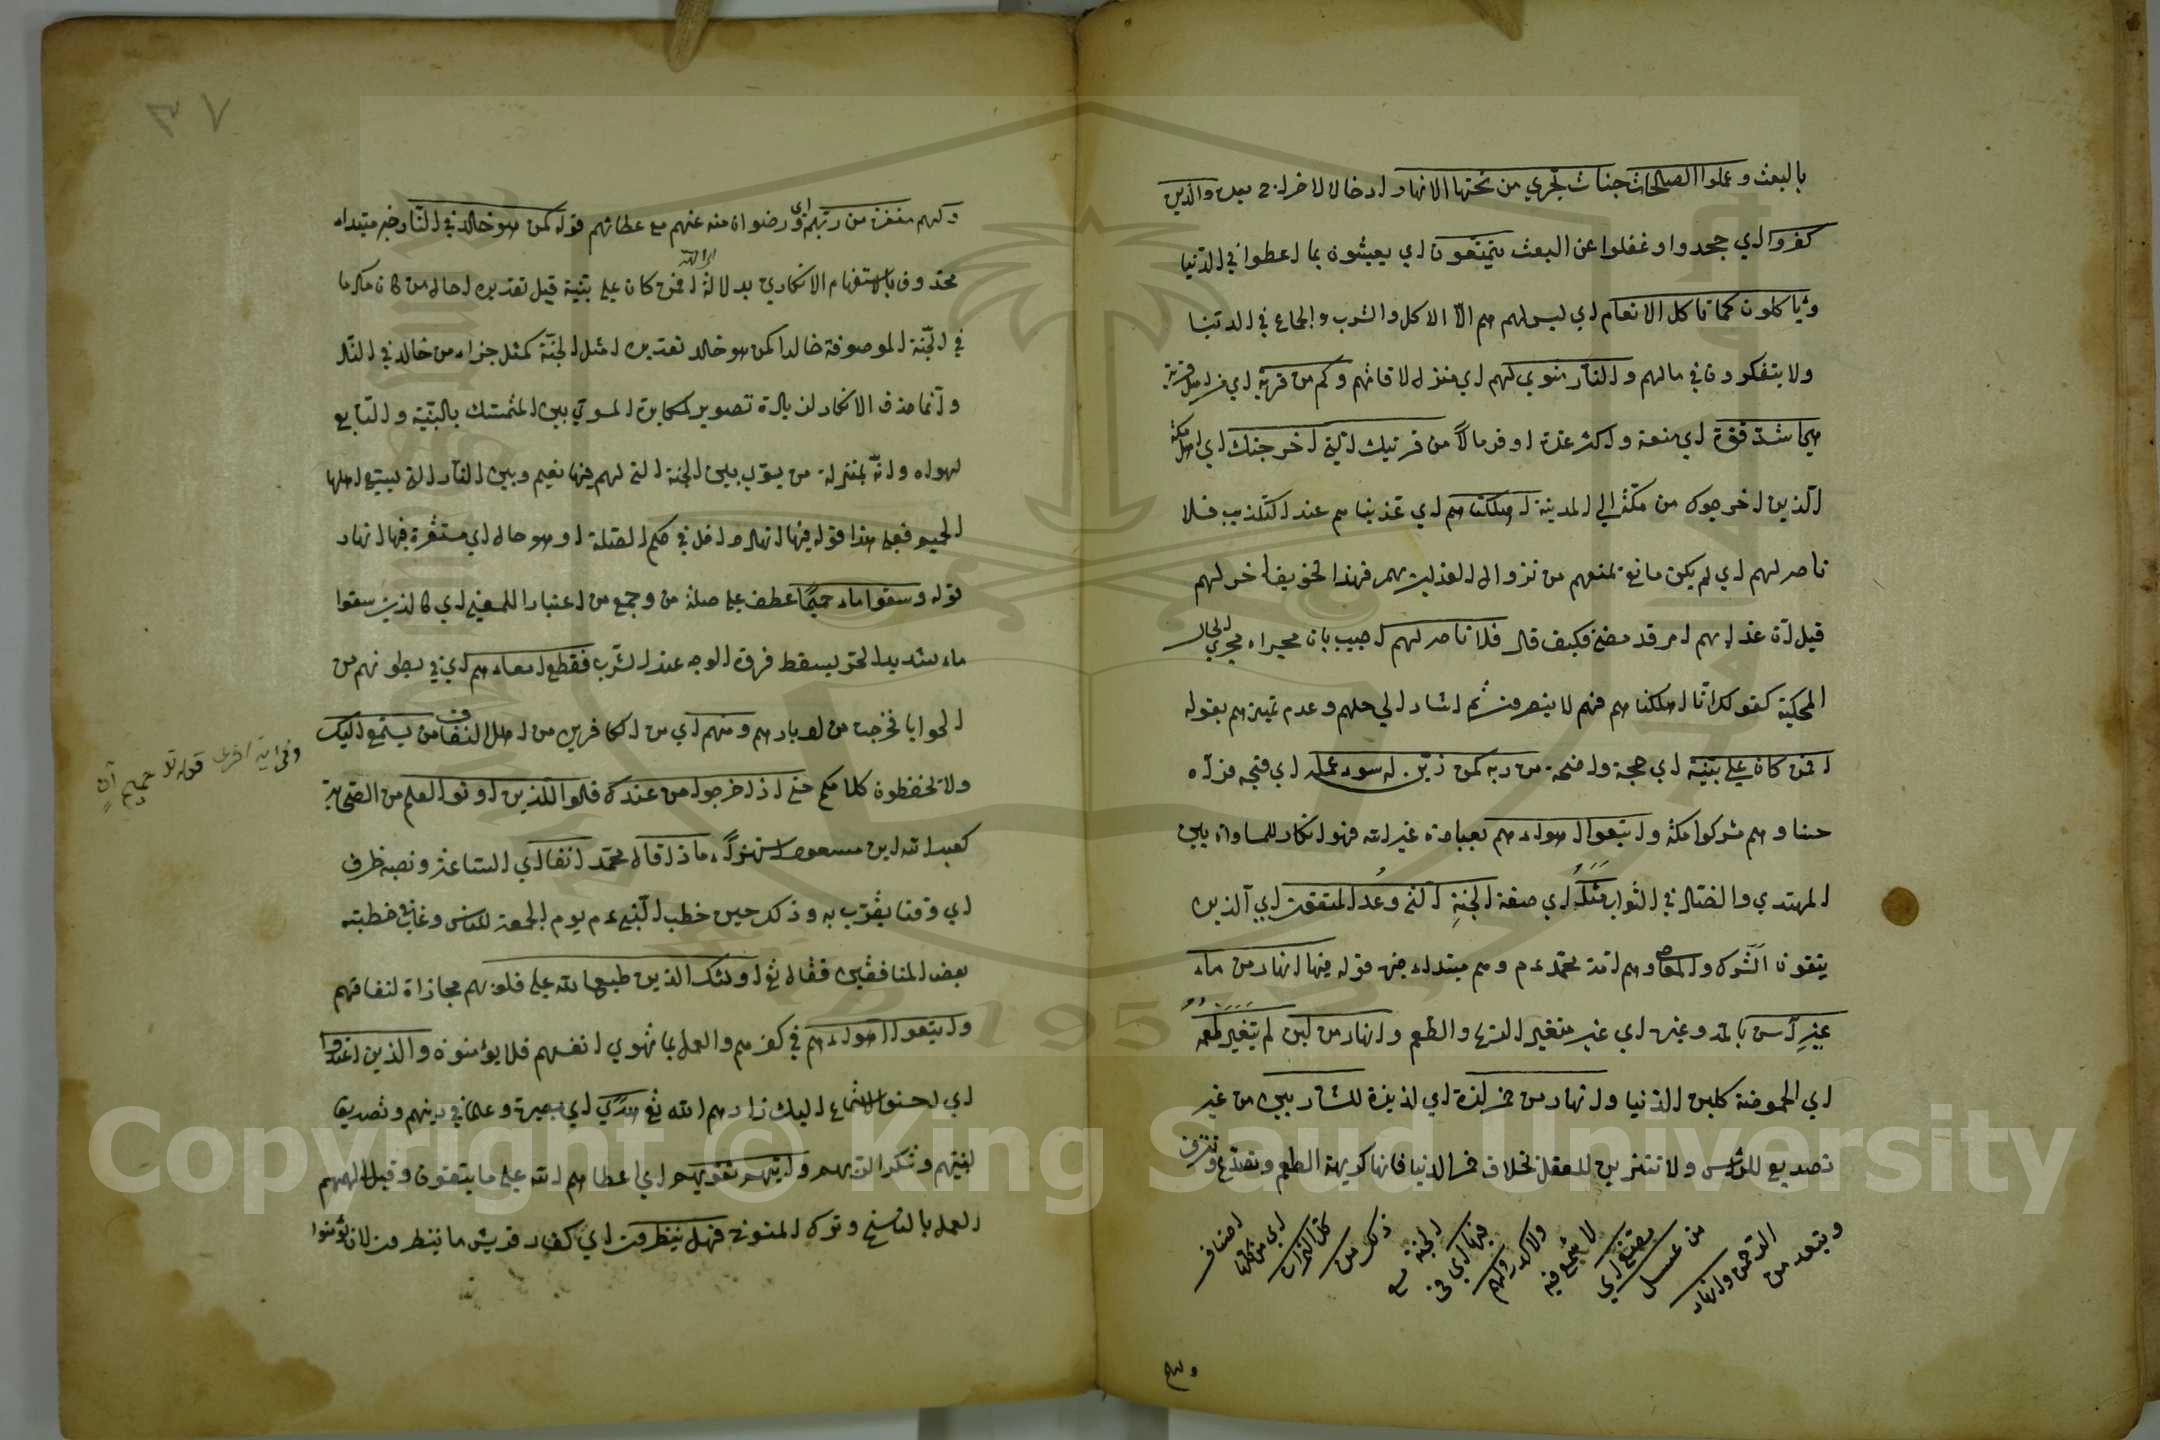 بالبعث وعملوا الصالحات جنات تجري من تحتها الانهار ادخالا لا خراج بعده والذين
كفروا اي جحدوا وغفلوا عن البعث يتمتعون اي يعيشون بما اعطوا في الدنيا
وياكلون كما تاكل الانعام اي ليس لهم هم الا الاكل والشرب والجماع في الدنيا
ولا يتفكرون في مالهم والنار مثوي لهم اي منزل لاقامتهم وكم من قرية اي من اهل قرية
هي اشد قوة اي منعة واكثر عدة اوفر مالا من قريتك التي اخرجتك اي اهل مكة
الذين اخرجوك من مكة الي المدينة اهلكناهم اي عذبناهم عند التكذيب فلا
ناصر لهم اي لم يكن مانع يمنعهم من نزوال العذاب بهم فهذا تخويف اخر لهم
قيل ان عذابهم امر قد مضي فكيف قال فلا ناصر لهم اجيب بان مجراه مجري الحال
المحكية كقولك انا اهلكناهم فهم لا ينصرون ثم اشار الي جهلهم وعدم تميزهم بقوله
افمن كان علي بينة اي حجة واضحة من ربه كمن زين له سوء عمله اي قبحه فرآه
حسنا وهم مشركوا مكة واتبعوا اهواءهم بعبادة غير الله فهو انكار للمساواة بين
المهتدي والضال في الثواب مثل اي صفة الجنة التي وعد المتقون اي الذين
يتقون الشرك والمعاصي وهم امة محمد عم وهم مبتداء خبره قوله فيها انهار من ماء
غير آسن بالمد وغيره اي غير متغير الريح والطعم وانهار من لبن لم يتغير طعمه
اي الحموضة كلبن الدنيا وانهار من خمر لذة اي لذيذة للشاربين من غير
تصديع للرأس ولا تنزيف للعقل بخلاف خمر الدنيا فانها كريهة الطعم وتصدع وتنزف
وتبعد من الرحمن وانهار من عسل مصفي اي لا شمع فيه ولا كدر ولهم فيها اي في الجنة مع ذلك من كل الثمرات اي من كلها اصناف
ولهم
٣٧
ولهم مغفرة من ربهم اي ورضوان منه عنهم مع عطائهم قوله كمن هو خالد في النار خبر مبتداء
محذوف بالاستفهام الانكاري بدلالة افمن كان علي بينة قيل تقديره احال من كان
في الجنة الموصوفة خالدا كمن هو خالد تقديره امثل الجنة كمثل جزاء من خالد في النار
وانما حذف الانكار لزيادة تصوير لمكابرة المسوي بين المتمسك بالبينة والتابع
لهواه وانه بمنزلة من يسوي بين الجنة التي لهم فيها نعيم وبين النار التي يسقي اهلها
الحميم فعلي هذا قوله فيها انهار داخل في حكم الصلة او هو حال اي مستقرة فيها انهار
قوله وسقوا ماء حميما عطف علي صلة من وجمع من اعتبارا للمعني اي كالذين سقوا
ماء شديد الحر يسقط فروة الوجه عند الشرب فقطع امعاءهم اي في بطونهم من
الحوايا فخرجت من ادبارهم ومنهم اي من الكافرين من اهل النفاق من يستمع اليك
وفي اية اخري قوله تع حميم آن
ولا يحفظون كلامكم حتي اذا خرجوا من عندك قالوا للذين اوتوا العلم من الصحابة
كعبد الله ابن مسعود استهزاء ماذا قال محمد انفا اي الساعة ونصبه ظرف
اي وقتا يقرب به وذكر حين خطب النبي عم يوم الجمعة للناس وعاب في خطبته
بعض المنافقين فقال تع اولئك الذين طبع الله علي قلوبهم مجازاة لنفاقهم
واتبعوا اهواءهم في كفرهم والعمل بما تهوي انفسهم فلا يؤمنون والذين اهتدوا
اي احسنوا الاستماع اليك زادهم الله تع هدي اي بصيرة وعلما في دينهم وتصديقا
لنبيهم وشكرا لربهم واتيهم تقويهم اي اعطاهم الله علي ما يتقون وقيل الهمهم
العمل بالناسخ وترك المنسوخ فهل ينظرون اي كفار قريش ما ينتظرون لان يؤمنوا
Copyright © King Saud University
1957